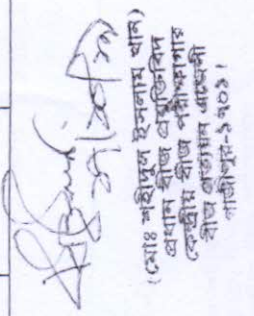 (মোঃ শহীদুল ইসলাম খান)
প্রধান বীজ প্রযুক্তিবিদ
কেন্দ্রীয় বীজ পরীক্ষাগার
বীজ প্রত্যয়ন এজেন্সী
গাজীপুর-১৭০১।